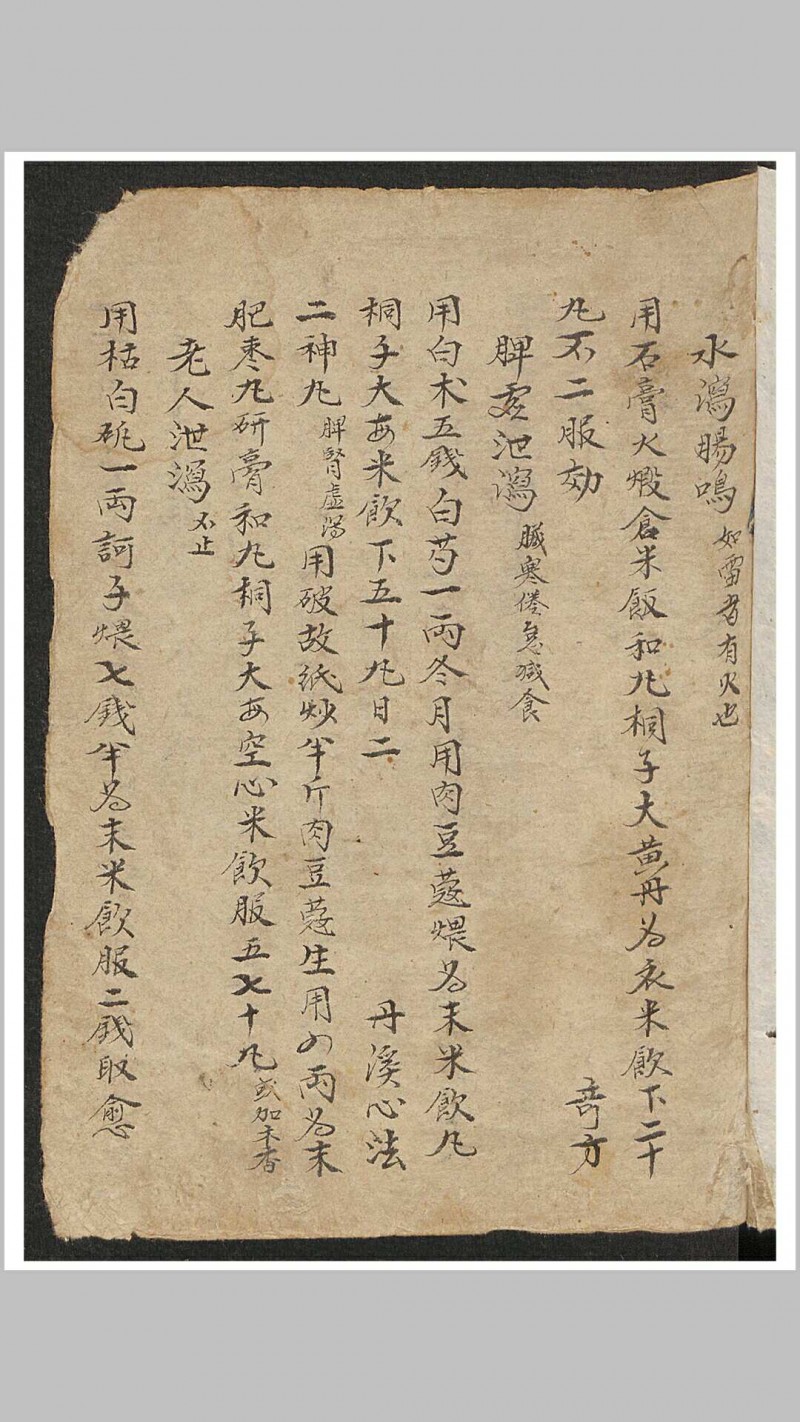 水瀉腸鳴 如雷者有火也
用石膏火煅倉米飯和丸桐子大黄丹為衣米飲下二十
丸不二服効 奇方
脾虚泄瀉 臓寒倦怠减食
用白术五錢白芍一両冬月用肉豆蔻煨為末米飲丸
桐子大每米飲下五十丸日二 丹溪心法
二神丸 脾腎虚瀉 用破故紙炒半斤肉豆蔻生用四両為末
肥枣丸研膏和丸桐子大每空心米飲服五七十丸 或加木香
老人泄瀉 不止
用枯白矾一両訶子煨七錢半為末米飲服二錢取愈